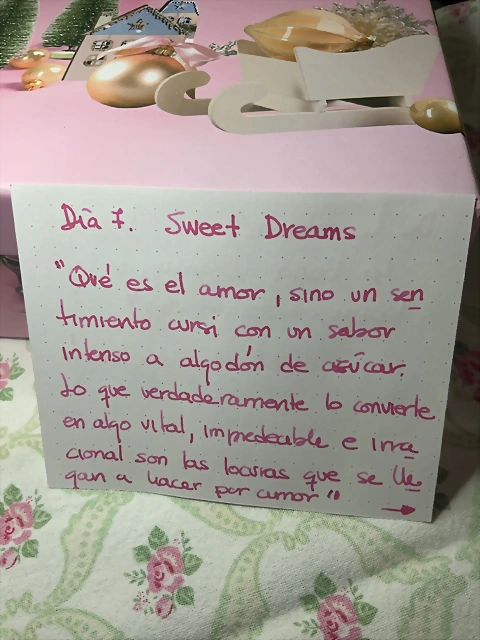 Día 7. Sweet Dreams
"Qué es el amor, sino un sen
timiento cursi con un sabor
intenso a algodón de azúcar.
Lo que verdaderamente lo convierte
en algo vital, impredecible e irra
cional son las locuras que se lle
gan a hacer por amor"